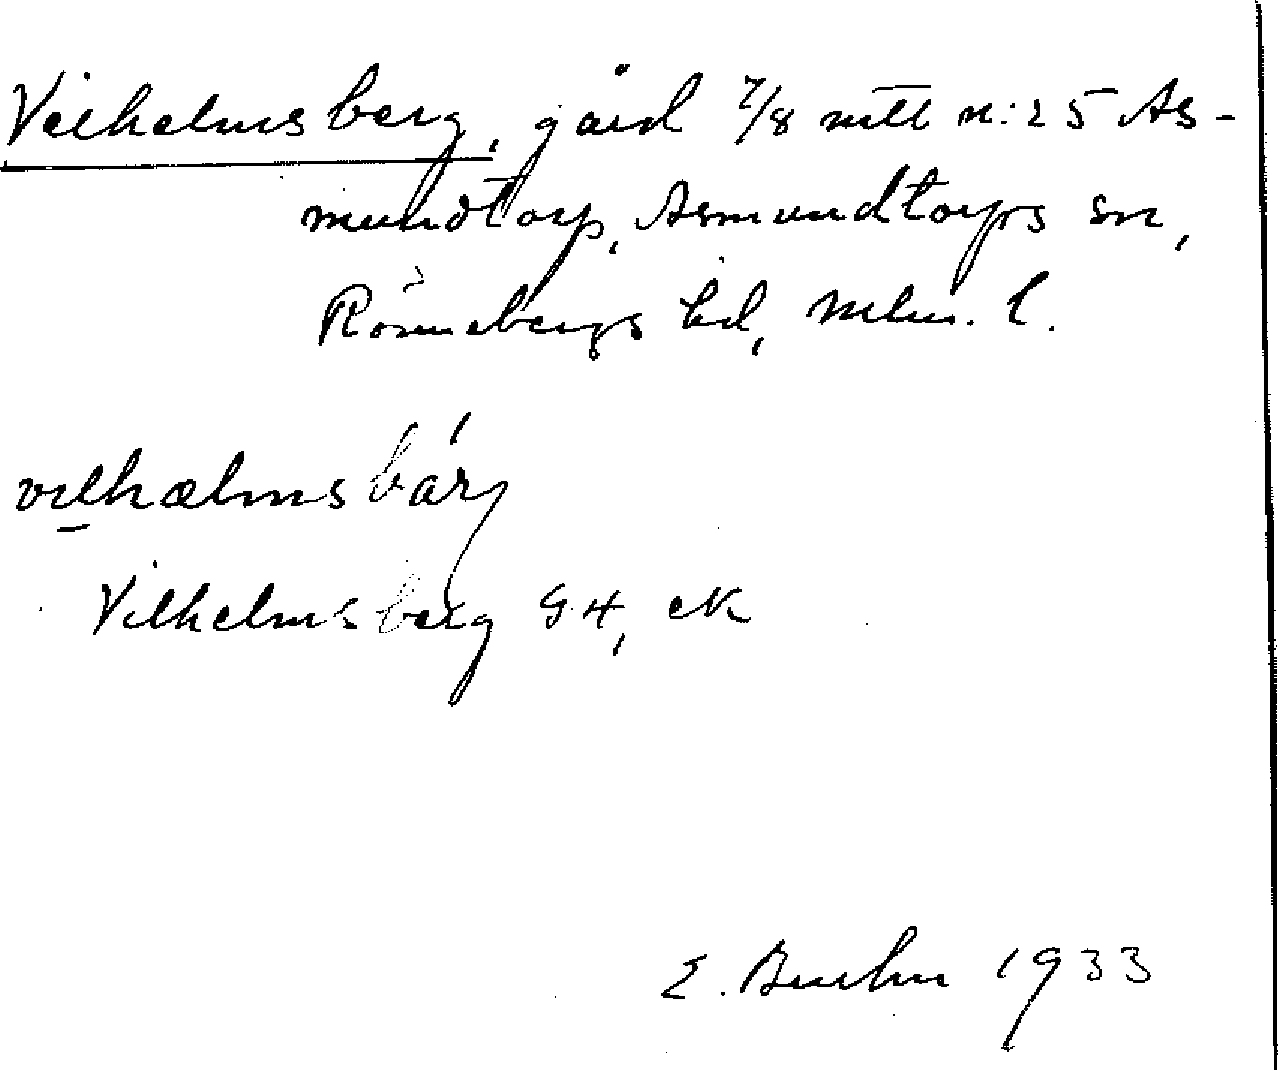 Vilhelmsberg, gård 7/8 mtl n:25 As-
mundtorp, Asmundtorps sn,
Rönnebergs hd, Mlm. l.
vilhælmsbárj
Vilhelmsberg G4, ek
E. 1933